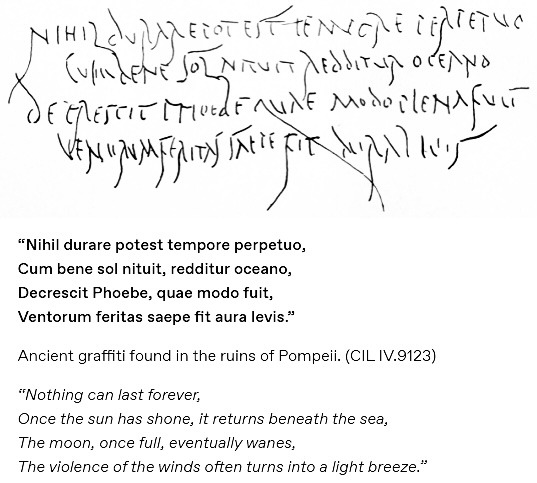 NIHIL DURARE POTEST TEMPORE PERPETUO
CUM BENE SOL NITUIT REDDITUR OCEANO
DECRESCIT PHOEBE QUAE MODO PLENA FUIT
VENERUM FERITAS SAEPE FIT AURA LEVIS
“Nihil durare potest tempore perpetuo,
Cum bene sol nituit, redditur oceano,
Decrescit Phoebe, quae modo fuit,
Ventorum feritas saepe fit aura levis.”
Ancient graffiti found in the ruins of Pompeii. (CIL IV.9123)
“Nothing can last forever,
Once the sun has shone, it returns beneath the sea,
The moon, once full, eventually wanes,
The violence of the winds often turns into a light breeze.”